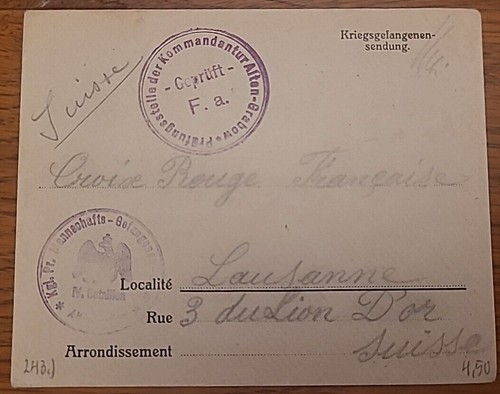 Kriegsgefangenen-
sendung.
Suisse
Prüfungsstelle der Kommandantur Alten-Grabow
- Geprüft -
F. a.
Croix Rouge Française
* Kgl. Pr. Mannschafts-Gefangenen
IV. Bataillon
Localité Lausanne
Rue 3 du Lion D'or
Arrondissement Suisse
243.)
4,50